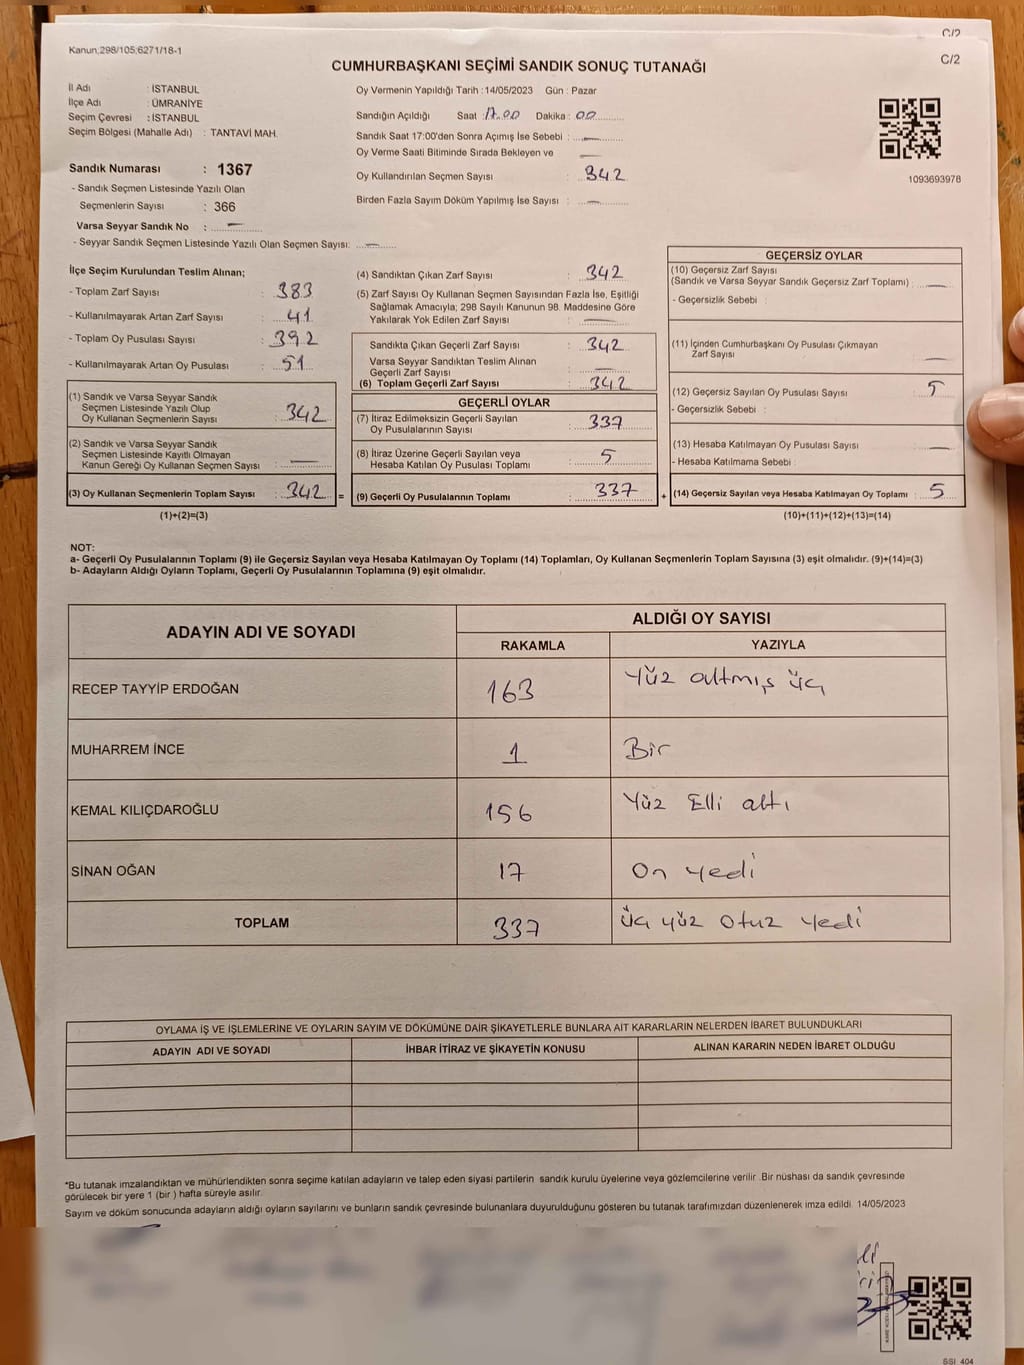 C/2
Kanun;298/105;6271/18-1
C/2
CUMHURBAŞKANI SEÇİMİ SANDIK SONUÇ TUTANAĞI
İl Adı : İSTANBUL
İlçe Adı : ÜMRANİYE
Seçim Çevresi : İSTANBUL
Seçim Bölgesi (Mahalle Adı) : TANTAVİ MAH.
Sandık Numarası : 1367
- Sandık Seçmen Listesinde Yazılı Olan
Seçmenlerin Sayısı : 366
Varsa Seyyar Sandık No : —
- Seyyar Sandık Seçmen Listesinde Yazılı Olan Seçmen Sayısı: —
Oy Vermenin Yapıldığı Tarih : 14/05/2023 Gün : Pazar
Sandığın Açıldığı Saat : 17.00 Dakika : 00
Sandık Saat 17:00'den Sonra Açımış İse Sebebi : —
Oy Verme Saati Bitiminde Sırada Bekleyen ve —
Oy Kullandırılan Seçmen Sayısı : 342
Birden Fazla Sayım Döküm Yapılmış İse Sayısı : —
1093693978
İlçe Seçim Kurulundan Teslim Alınan;
- Toplam Zarf Sayısı : 383
- Kullanılmayarak Artan Zarf Sayısı : 41
- Toplam Oy Pusulası Sayısı : 392
- Kullanılmayarak Artan Oy Pusulası : 51
(1) Sandık ve Varsa Seyyar Sandık
Seçmen Listesinde Yazılı Olup
Oy Kullanan Seçmenlerin Sayısı : 342
(2) Sandık ve Varsa Seyyar Sandık
Seçmen Listesinde Kayıtlı Olmayan
Kanun Gereği Oy Kullanan Seçmen Sayısı : —
(3) Oy Kullanan Seçmenlerin Toplam Sayısı : 342 =
(1)+(2)=(3)
(4) Sandıktan Çıkan Zarf Sayısı : 342
(5) Zarf Sayısı Oy Kullanan Seçmen Sayısından Fazla İse, Eşitliği
Sağlamak Amacıyla; 298 Sayılı Kanunun 98. Maddesine Göre
Yakılarak Yok Edilen Zarf Sayısı : —
Sandıkta Çıkan Geçerli Zarf Sayısı : 342
Varsa Seyyar Sandıktan Teslim Alınan
Geçerli Zarf Sayısı : —
(6) Toplam Geçerli Zarf Sayısı : 342
GEÇERLİ OYLAR
(7) İtiraz Edilmeksizin Geçerli Sayılan
Oy Pusulalarının Sayısı : 337
(8) İtiraz Üzerine Geçerli Sayılan veya
Hesaba Katılan Oy Pusulası Toplamı : 5
(9) Geçerli Oy Pusulalarının Toplamı : 337 +
GEÇERSİZ OYLAR
(10) Geçersiz Zarf Sayısı
(Sandık ve Varsa Seyyar Sandık Geçersiz Zarf Toplamı) : —
- Geçersizlik Sebebi :
(11) İçinden Cumhurbaşkanı Oy Pusulası Çıkmayan
Zarf Sayısı —
(12) Geçersiz Sayılan Oy Pusulası Sayısı : 5
- Geçersizlik Sebebi :
(13) Hesaba Katılmayan Oy Pusulası Sayısı : —
- Hesaba Katılmama Sebebi :
(14) Geçersiz Sayılan veya Hesaba Katılmayan Oy Toplamı : 5
(10)+(11)+(12)+(13)=(14)
NOT:
a- Geçerli Oy Pusulalarının Toplamı (9) ile Geçersiz Sayılan veya Hesaba Katılmayan Oy Toplamı (14) Toplamları, Oy Kullanan Seçmenlerin Toplam Sayısına (3) eşit olmalıdır. (9)+(14)=(3)
b- Adayların Aldığı Oyların Toplamı, Geçerli Oy Pusulalarının Toplamına (9) eşit olmalıdır.
ADAYIN ADI VE SOYADI
ALDIĞI OY SAYISI
RAKAMLA YAZIYLA
RECEP TAYYİP ERDOĞAN 163 Yüz altmış üç
MUHARREM İNCE 1 Bir
KEMAL KILIÇDAROĞLU 156 Yüz Elli altı
SİNAN OĞAN 17 On yedi
TOPLAM 337 üç yüz otuz yedi
OYLAMA İŞ VE İŞLEMLERİNE VE OYLARIN SAYIM VE DÖKÜMÜNE DAİR ŞİKAYETLERLE BUNLARA AİT KARARLARIN NELERDEN İBARET BULUNDUKLARI
ADAYIN ADI VE SOYADI İHBAR İTİRAZ VE ŞİKAYETİN KONUSU ALINAN KARARIN NEDEN İBARET OLDUĞU
*Bu tutanak imzalandıktan ve mühürlendikten sonra seçime katılan adayların ve talep eden siyasi partilerin sandık kurulu üyelerine veya gözlemcilerine verilir .Bir nüshası da sandık çevresinde
görülecek bir yere 1 (bir ) hafta süreyle asılır.
Sayım ve döküm sonucunda adayların aldığı oyların sayılarını ve bunların sandık çevresinde bulunanlara duyurulduğunu gösteren bu tutanak tarafımızdan düzenlenerek imza edildi. 14/05/2023
SSI_404